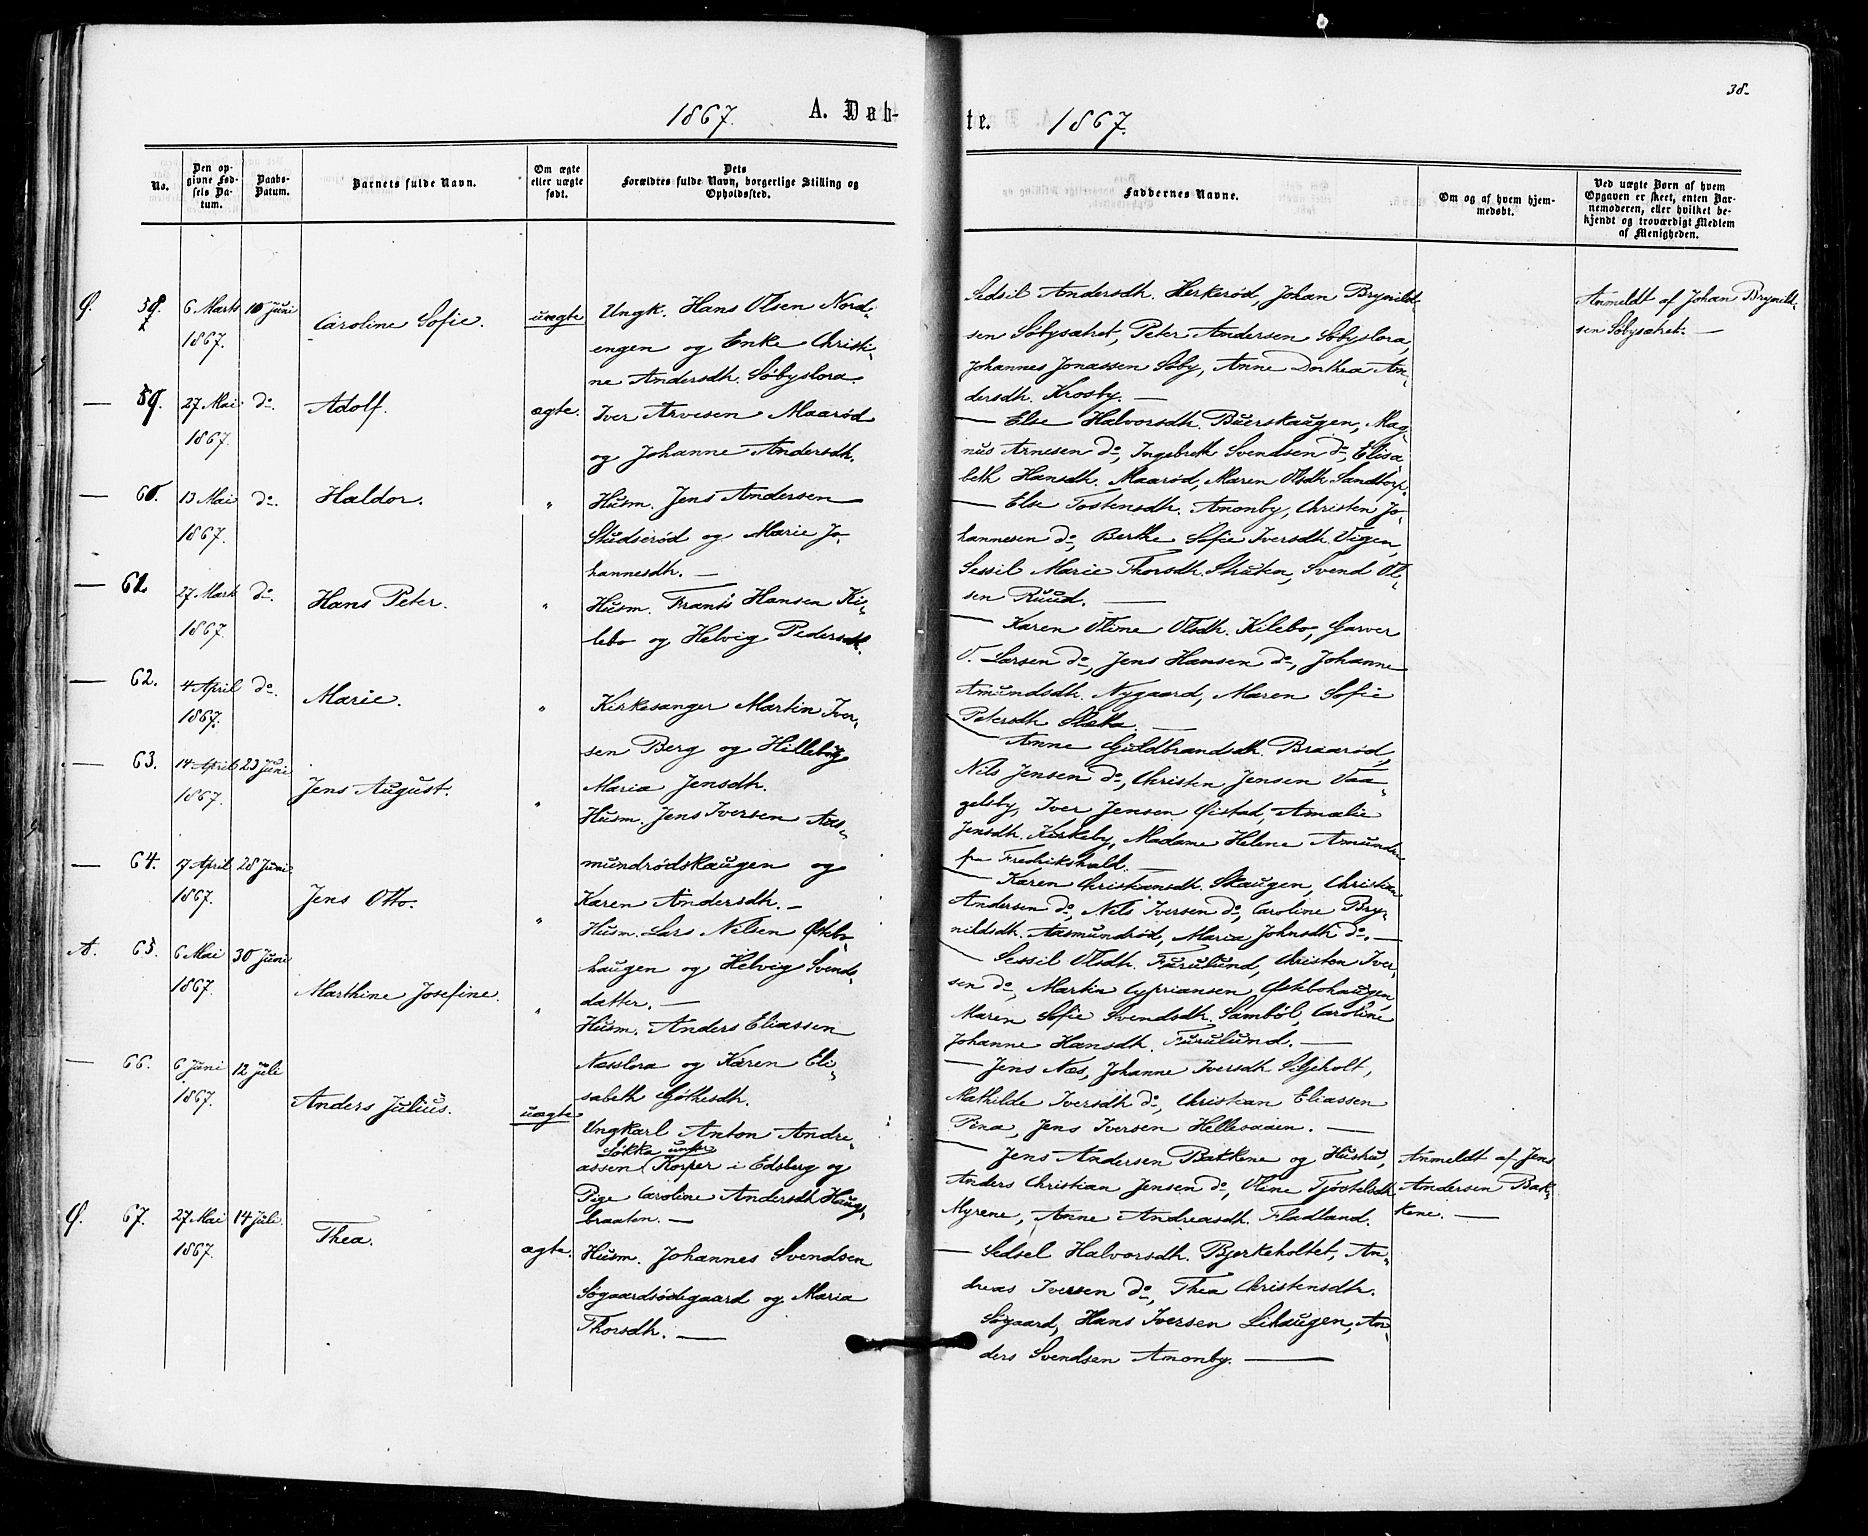 38.
1867. A. Døb-
te. 1867.
No.
Den op-
givne Fød-
sels Da-
tum.
Daabs-
Datum.
Barnets fulde Navn.
Om ægte
eller uægte
født.
Dets
Forældres fulde Navn, borgerlige Stilling og
Opholdssted.
Faddernes Navne.
Om og af hvem hjem-
medøbt.
Ved uægte Børn af hvem
Opgaven er skeet, enten Bar-
nemoderen, eller hvilket be-
kjendt og troværdigt Medlem
af Menigheden.
Ø. 58. 6 Marts 10 Juni
1867.
Caroline Sofie. uægte
Ungk. Hans Olsen Nord-
engen og Enke Christi-
ne Andersdh. Søbyslora.
Sidsil Andersdh. Herkerød, Johan Brynild-
sen Søbysætret, Peter Andersen Søbyslora,
Johannes Jonassen Søby, Anne Dorthea An-
dersdh. Krosby. —
Anmeldt af Johan Brynild-
sen Søbysætret. —
— 59. 27 Mai do.
1867.
Adolf. ægte.
Iver Arvesen Maarød
og Johanne Andersdh.
— Else Halvorsdh. Buerskaugen, Mag-
nus Arnesen do, Ingebreth Svendsen do, Elisa-
beth Hansdh. Maarød, Maren Olsdh. Sandtorp.
— 60. 13 Mai do.
1867.
Haldor. "
Husm. Jens Andersen
Studserød og Marie Jo-
hannesdh. —
— Else Tostensdh. Amonby, Christen Jo-
hannesen do, Berthe Sofie Iversdh. Vigen,
Sessil Marie Thorsdh. Skuka, Svend Ol-
sen Ruud. —
— 61. 27 Marts do.
1867.
Hans Peter. "
Husm. Frants Hansen Ki-
lebo og Helvig Pedersdh.
— Karen Oline Olsdh. Kilebo, Garver
O. Larsen do, Jens Hansen do, Johanne
Amundsdh. Nygaard, Maren Sofie
Petersdh. —
— 62. 4 April do.
1867.
Marie. "
Kirkesanger Martin Iver-
sen Berg og Hilleborg
Maria Jensdh.
— Anne Guldbrandsdh. Braarød,
Nils Jensen do, Christen Jensen Vaa-
gelsby, Iver Jensen Øistad, Amalie
Jensdh. Kirkeby, Madame Helene Amundsen
fra Fredrikshald. —
— 63. 14 April 23 Juni
1867.
Jens August. "
Husm. Jens Iversen Aas-
mundrødskaugen og
Karen Andersdh. —
— Karen Christiansdh. Skaugen, Christian
Andersen do, Nils Iversen do, Caroline Bry-
nildsdh. Aasmundrød, Maria Johnsdh. do. —
— 64. 17 April 28 Juni
1867.
Jens Otto. "
Husm. Lars Nilsen Østebo-
haugen og Helvig Svends-
datter. —
— Sessil Olsdh. Furulund, Christen Iver-
sen do, Martin Cypriansen Østebohaugen,
Maren Sofie Svendsdh. Sambøl, Caroline
Johanne Hansdh. Furulund. —
A. 65. 6 Mai 30 Juni
1867.
Marthine Josefine. "
Husm. Anders Eliassen
Næsslora og Karen Eli-
sabeth Gøthesdh.
— Jens Næs, Johanne Iversdh. Siljeholt,
Mathilde Iversdh. do, Christian Eliassen
Pina, Jens Iversen Hellesaaen. —
— 66. 6 Juni 12 Juli
1867.
Anders Julius. uægte
Ungkarl Anton Andre-
assen Løkka under Korper i Edsberg og
Pige Caroline Andersdh. Haug-
braaten. —
— Jens Andersen Bakkene og Hustru,
Anders Christian Jensen do, Oline Tjøstelsdh.
Myrene, Anne Andreasdh. Fladland.
Anmeldt af Jens
Andersen Bak-
kene. —
Ø. 67. 27 Mai 14 Juli.
1867.
Thea. ægte.
Husm. Johannes Svendsen
Søgaardsødegaard og Maria
Thorsdh. —
— Sidsel Halvorsdh. Bjerkeholtet, An-
dreas Iversen do, Thea Christensdh.
Søgaard, Hans Iversen Lihaugen, An-
ders Svendsen Amonby. —